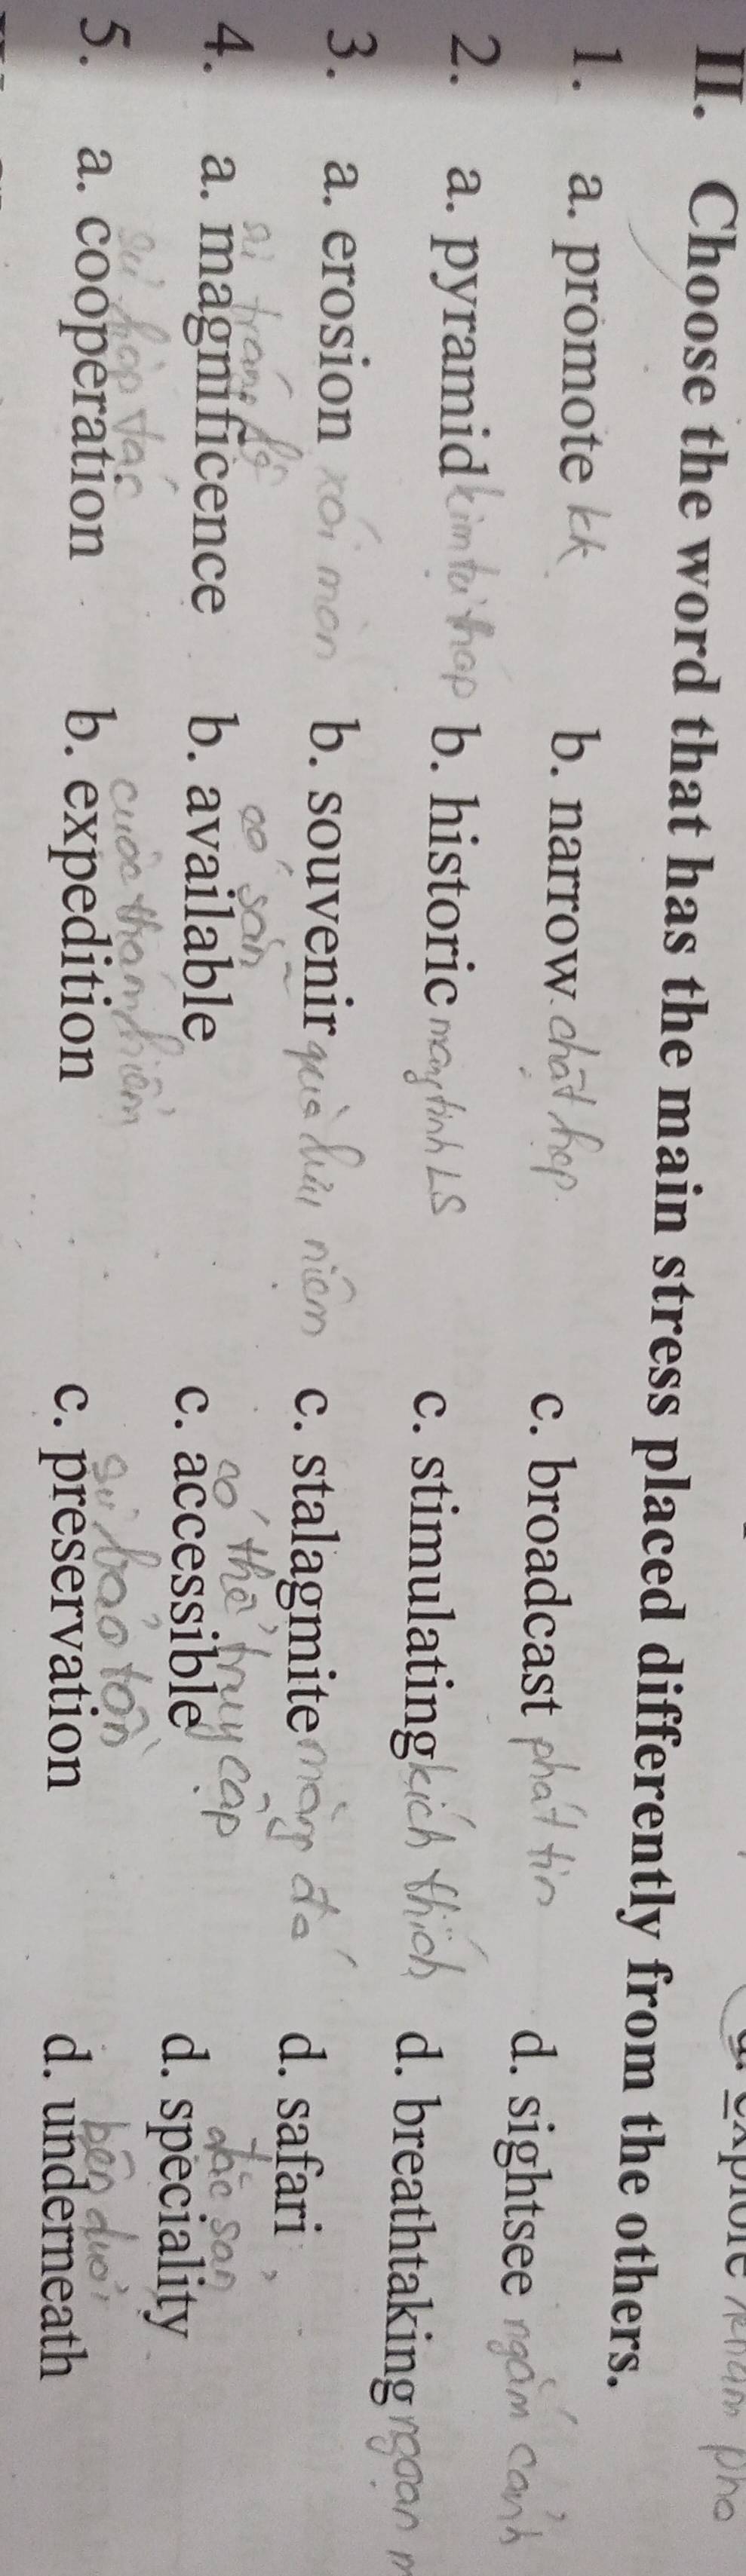 d. explore khám phá
II. Choose the word that has the main stress placed differently from the others.
1. a. promote kk b. narrow chật hẹp c. broadcast phát tin d. sightsee ngắm cảnh
2. a. pyramid kim tự tháp b. historic mang tính LS c. stimulating kích thích d. breathtaking ngoạn m
3. a. erosion xói mòn b. souvenir quà lưu niệm c. stalagmite măng đá d. safari
sự tráng lệ có sẵn có thể truy cập đặc sản
4. a. magnificence b. available c. accessible d. speciality
sự hợp tác cuộc thám hiểm sự bảo tồn bên dưới
5. a. cooperation b. expedition c. preservation d. underneath